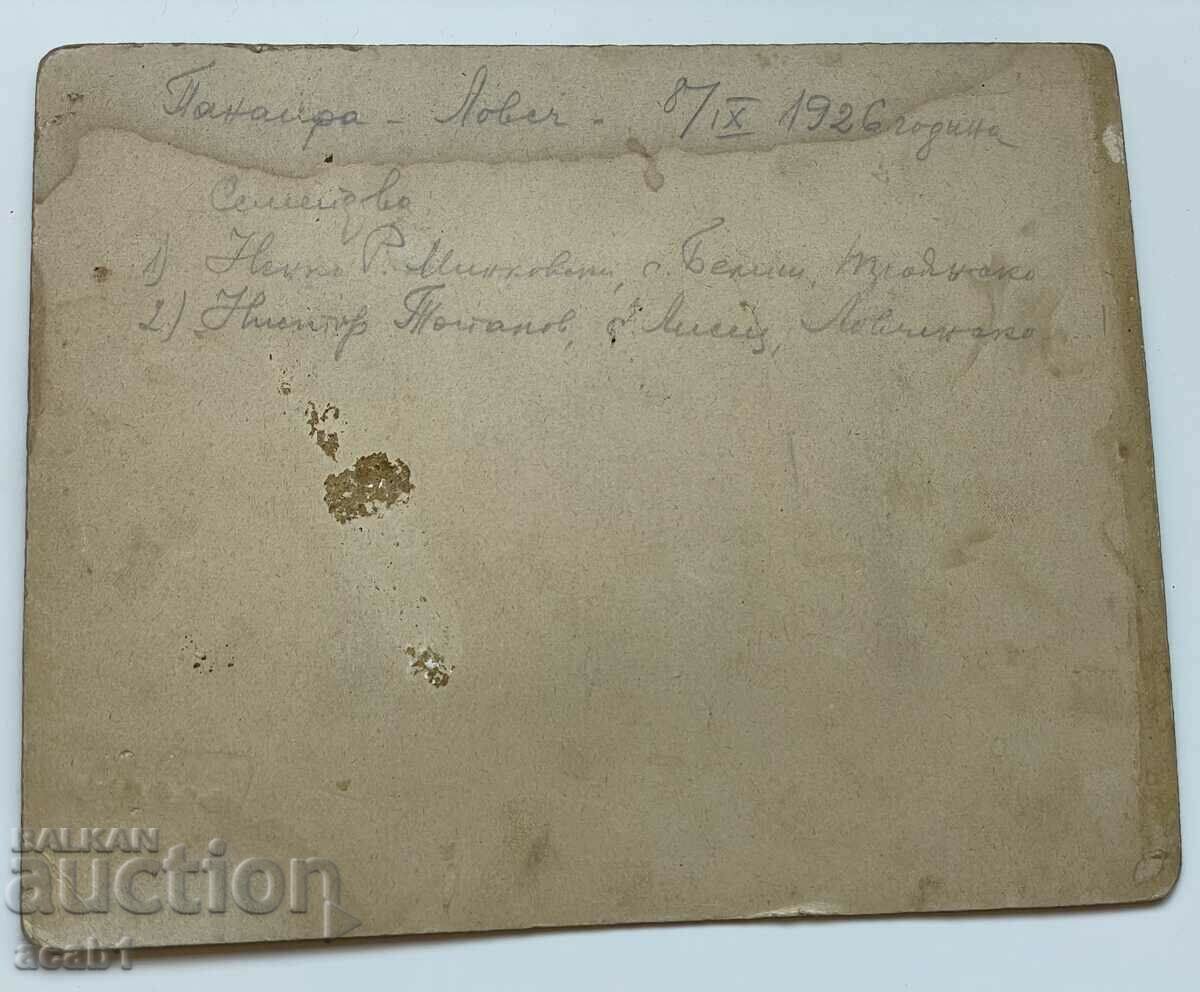 Панаира - Ловеч - 8/IX 1926 година
1) Ненко Р. Минковски, с. Белиш, Троянско
2) Нистор Топалов, с. Лисец, Ловчанско
BALKAN
auction
acab1